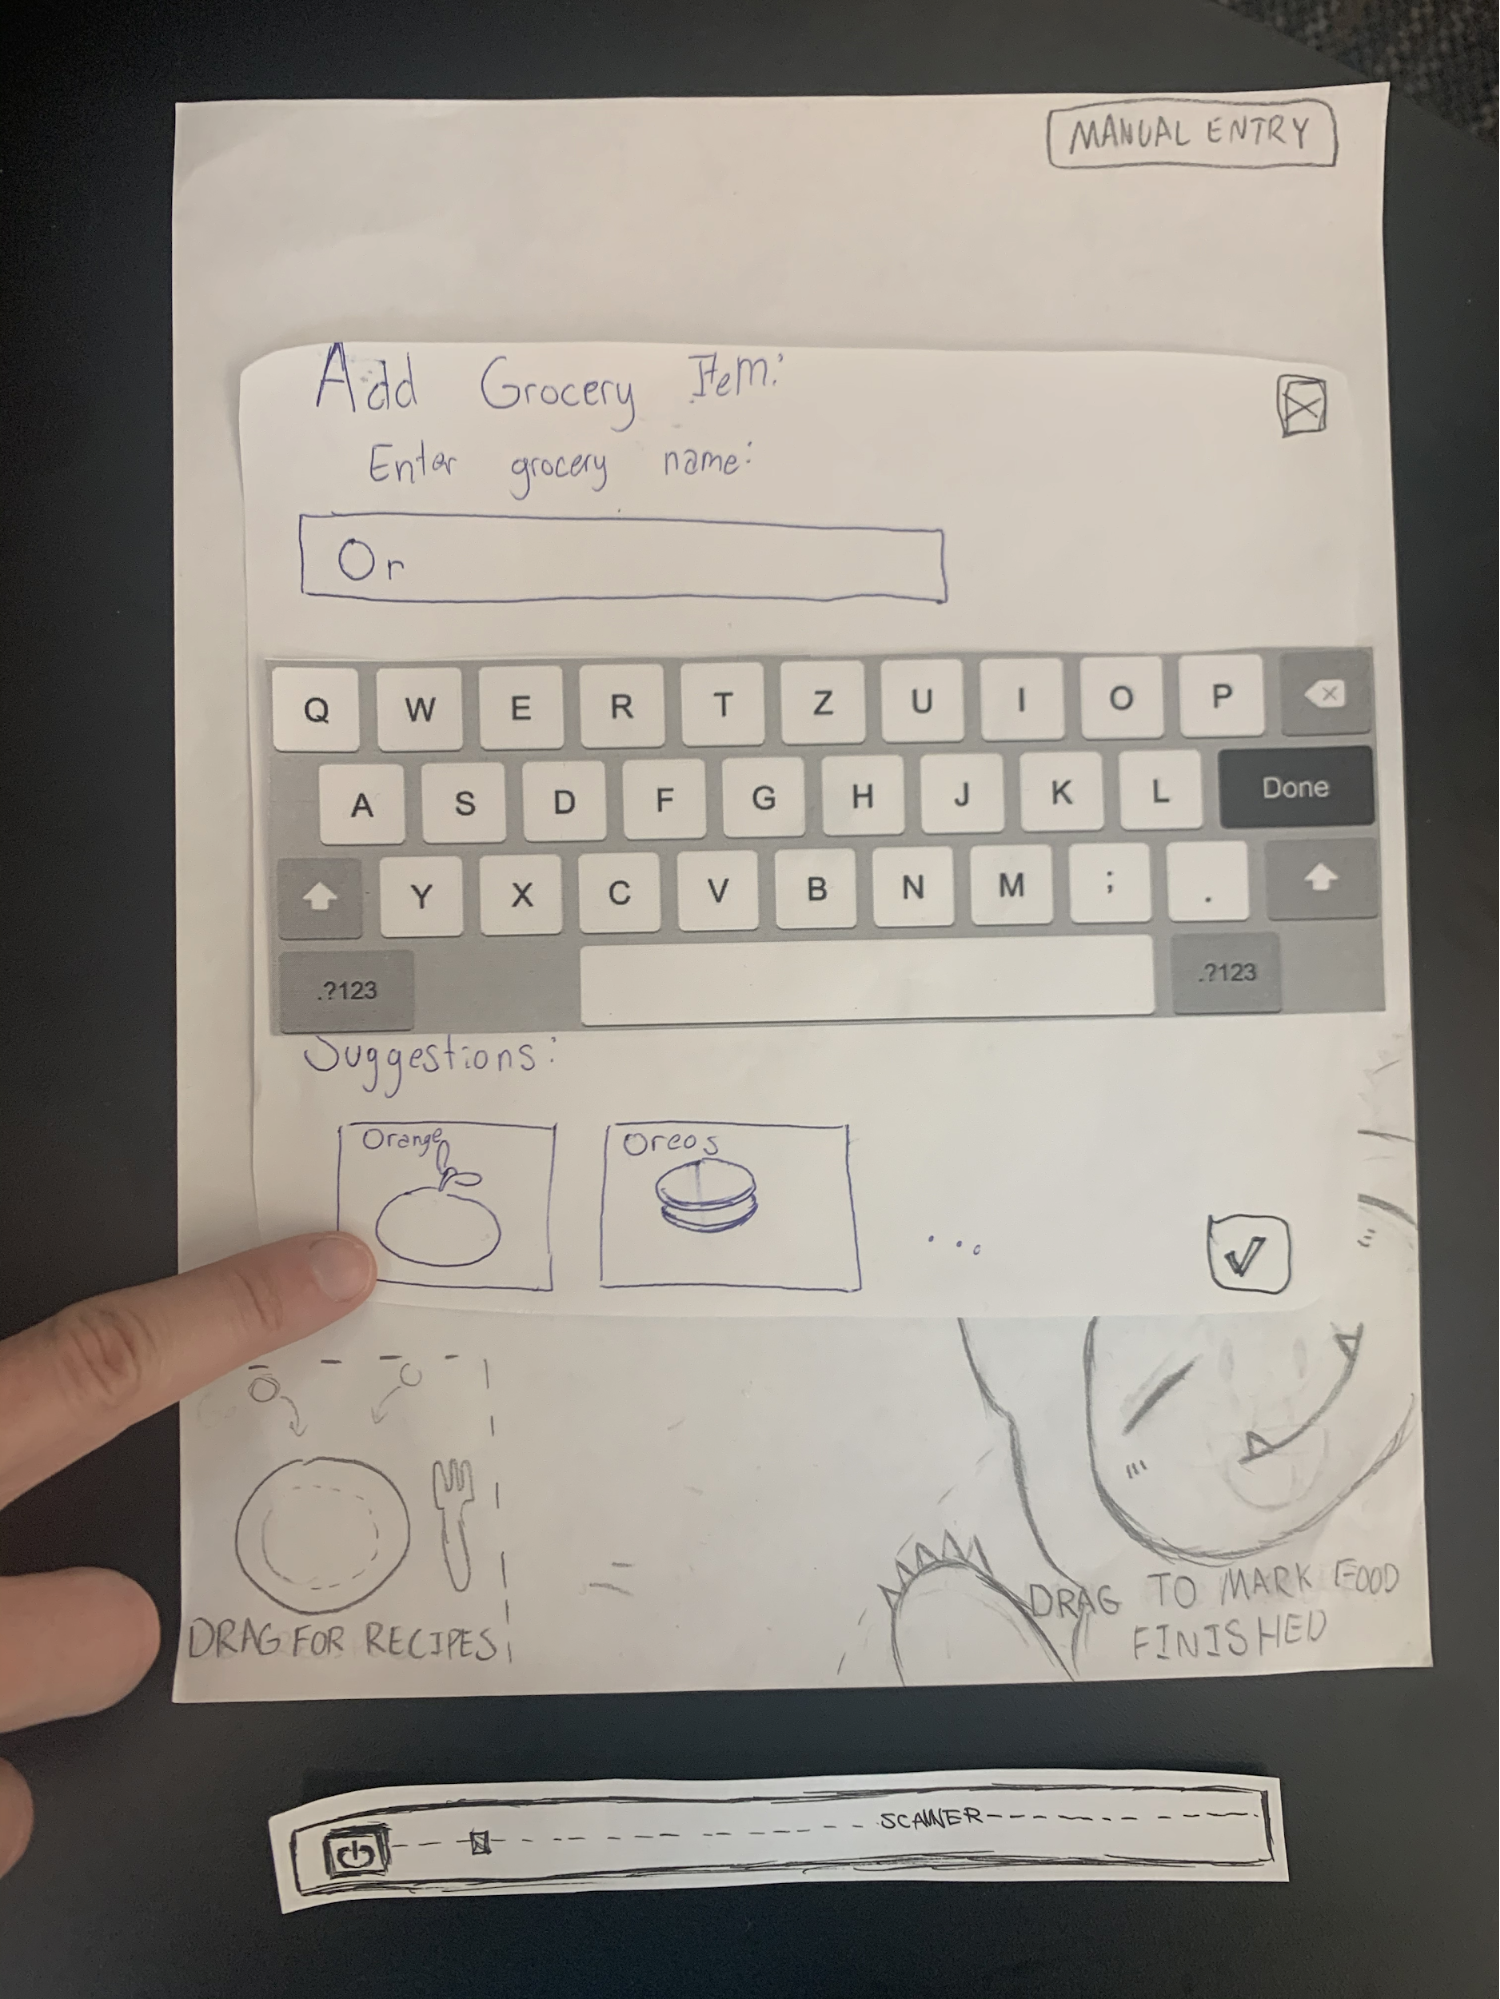 MANUAL ENTRY
Add Grocery Item:
Enter grocery name:
Or
Q W E R T Z U I O P
A S D F G H J K L Done
Y X C V B N M ; .
.?123 .?123
Suggestions:
Orange
Oreos
...
DRAG FOR RECIPES
DRAG TO MARK FOOD
FINISHED
SCANNER